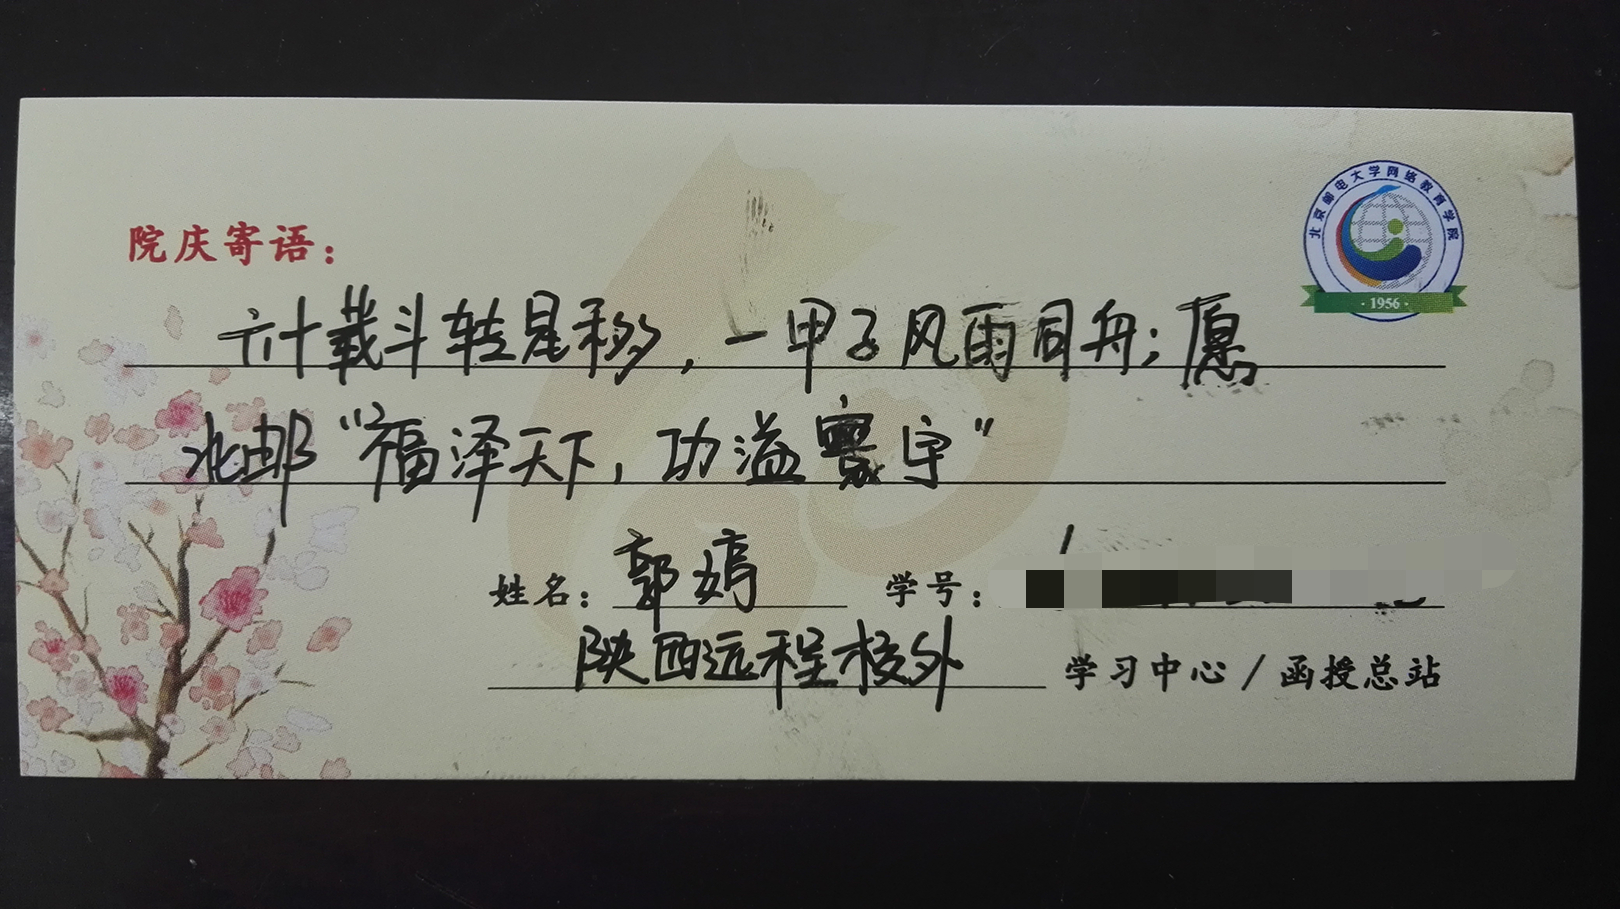 北京邮电大学网络教育学院
· 1956 ·
院庆寄语：
六十载斗转星移，一甲子风雨同舟；愿
北邮“福泽天下，功溢寰宇”
姓名：郭婷 学号：
陕西远程校外 学习中心 / 函授总站